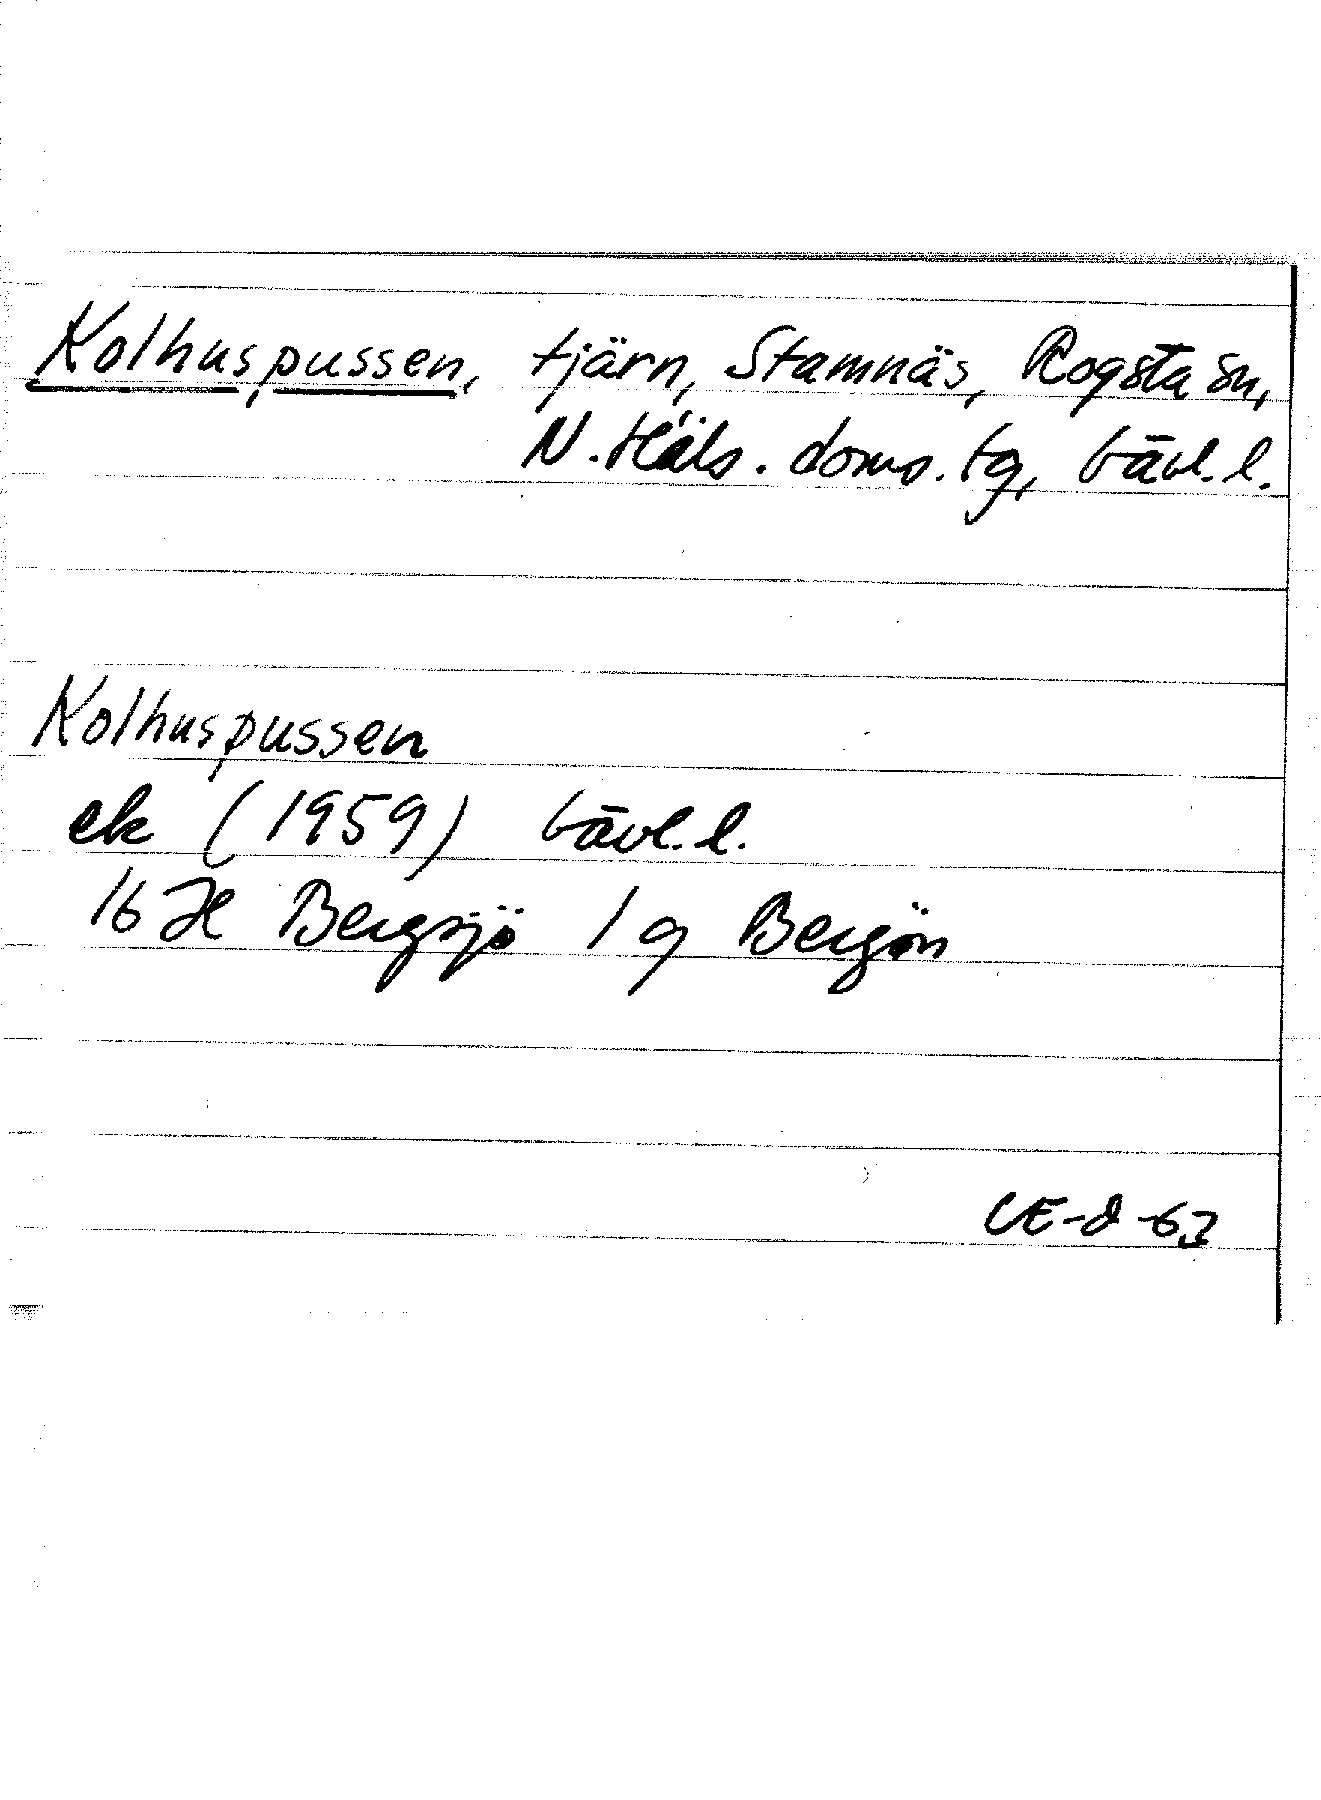 Kolhuspussen, tjärn, Stamnäs, Rogsta sn,
N. Häls. doms. tg, Gävl. l.
Kolhuspussen
ek (1959) Gävl. l.
16 H Bergsjö 1 g Bergön
CE-d-63